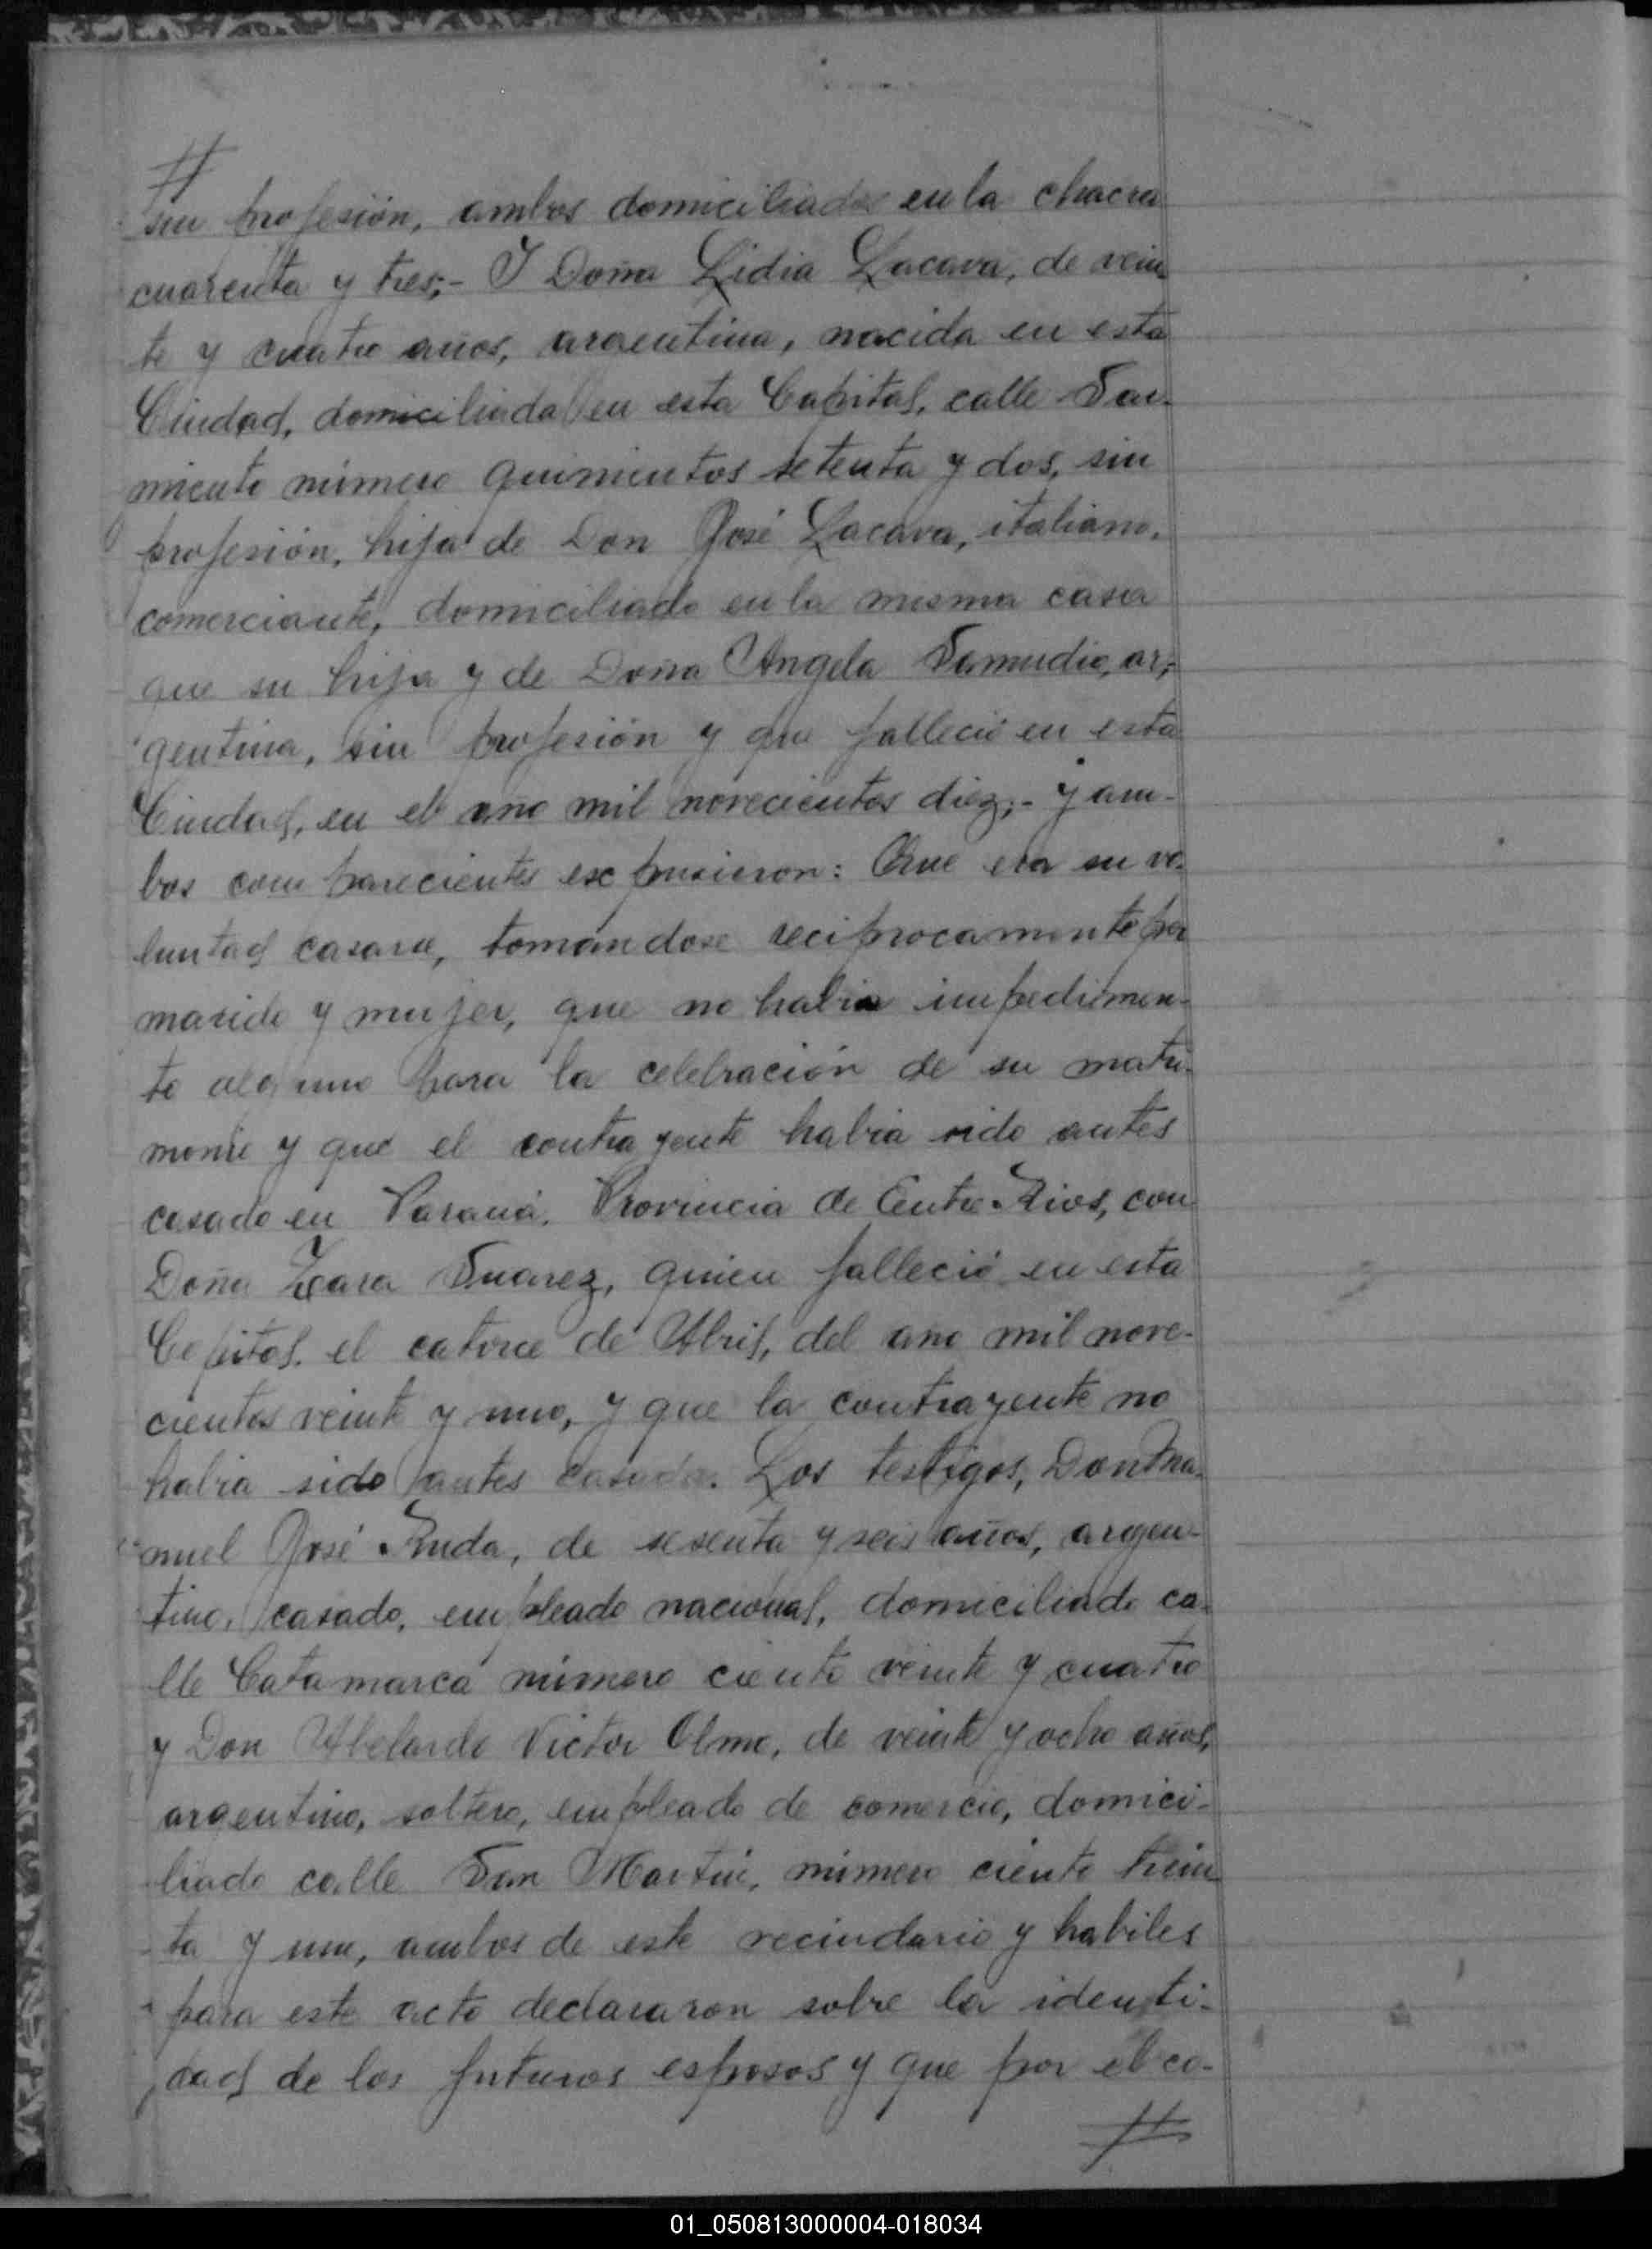 sin profesión, ambos domiciliados en la chacra
cuarenta y tres;- I Doña Lidia Lacava, de vein
te y cuatro años, argentina, nacida en esta
Ciudad, domiciliada en esta Capital, calle Sar-
miento número quinientos setenta y dos, sin
profesión, hija de Don José Lacava, italiano,
comerciante, domiciliado en la misma casa
que su hija y de Doña Angela Samudio, ar-
gentina, sin profesión y que falleció en esta
Ciudad, en el año mil novecientos diez;- y am-
bos comparecientes expusieron: Que era su vo-
luntad casarse, tomandose reciprocamente por
marido y mujer, que no habia impedimen-
to alguno para la celebración de su matri-
monio y que el contrayente habia sido antes
casado en Paraná, Provincia de Entre-Rios, con
Doña Suarez, quien falleció en esta
Capital, el catorce de Abril, del año mil nove-
cientos veinte y uno, y que la contrayente no
habia sido antes casada. Los testigos, Don Ma-
nuel José Ruda, de sesenta y seis años, argen-
tino, casado, empleado nacional, domiciliado ca-
lle Catamarca número ciento veinte y cuatro
y Don Abelardo Victor Olmo, de veinte y ocho años,
argentino, soltero, empleado de comercio, domici-
liado calle San Martin, número ciento trein
ta y uno, ambos de este vecindario y habiles
para este acto declararon sobre la identi-
dad de los futuros esposos y que por el co-
01_050813000004-018034